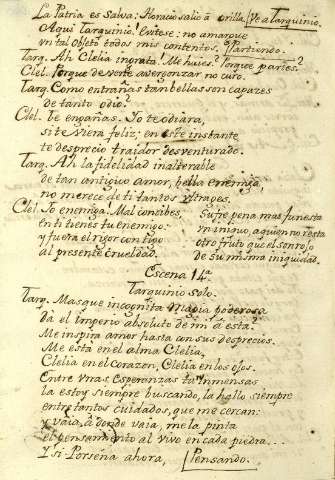 La Patria es Salva: Horacio salió á orilla. Ve á Tarquinio.
Aqui Tarquinio! Evitese: no amargue
un tal objeto todos mis contentos. Partiendo.
Tarq. Ah Clelia ingrata! Me huies? Porque partes?
Clel. Porque de verte avergonzar no curo.
Tarq. Como entrañas tan bellas son capazes
de tanto odio?
Clel. te engañas. Yo te odiara,
si te viera feliz; en este instante
te desprecio traidor desventurado.
Tarq. Ah la fidelidad inalterable
de tan antiguo amor, bella enemiga
no merece de ti tantos ultrages.
Clel. Yo enemiga. Mal concibes,
en ti tienes tu enemigo.
y fuera el rigor contigo
al presente crueldad.
Sufre pena mas funesta
un iniquo, a quien no resta
otro fruto que el sonrojo
de su misma iniquidad.
Escena 14ª
Tarquinio solo.
Tarq. Mas que incognita Magia poderosa
dá el imperio absoluto de mi á esta?
Me inspira amor hasta con sus desprecios.
Me está en el alma Clelia,
Clelia en el corazon, Clelia en los ojos.
Entre vras Esperanzas ta inmensas
la estoy siempre buscando, la hallo siempre
entre tantos cuidados, que me cercan:
y vaia, á donde vaia, me la pinta
el pensamiento al vivo en cada piedra...
Y si Porsena ahora, Pensando.